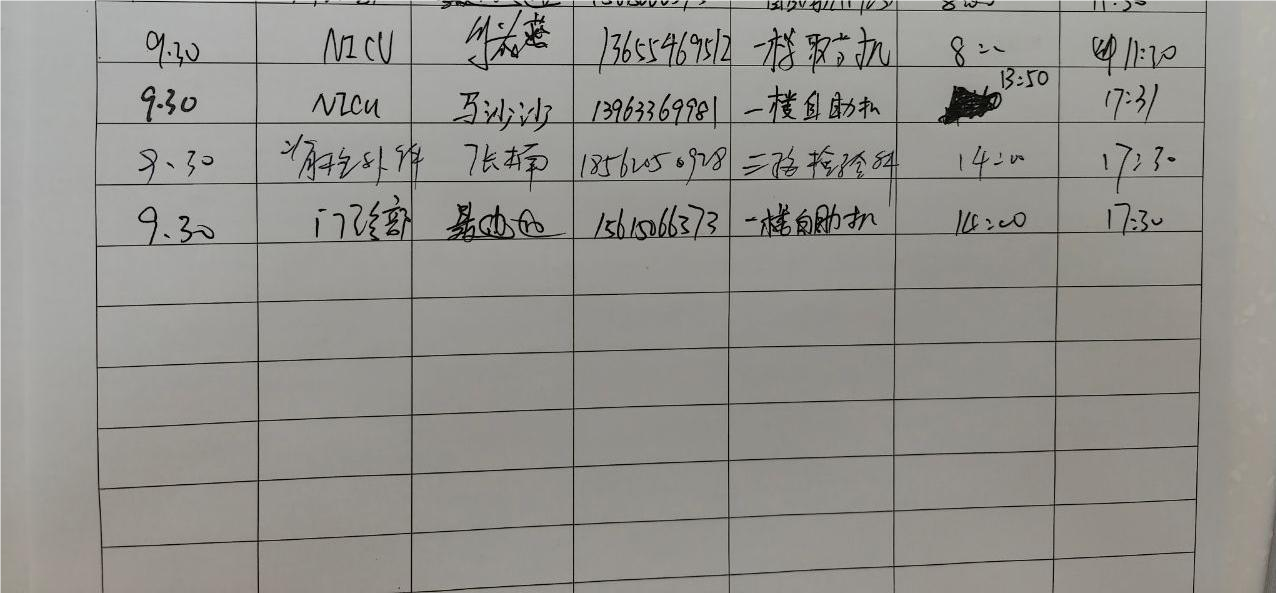 8:00 11:30
9.30 NICU 13655469512 一楼取片机 8:00 11:30
9.30 NICU 马沙沙 13963369981 一楼自助机 13:50 17:31
9.30 外科 张楠 18562050928 三楼检验科 14:00 17:30
9.30 门诊部 15615066373 一楼自助机 14:00 17:30